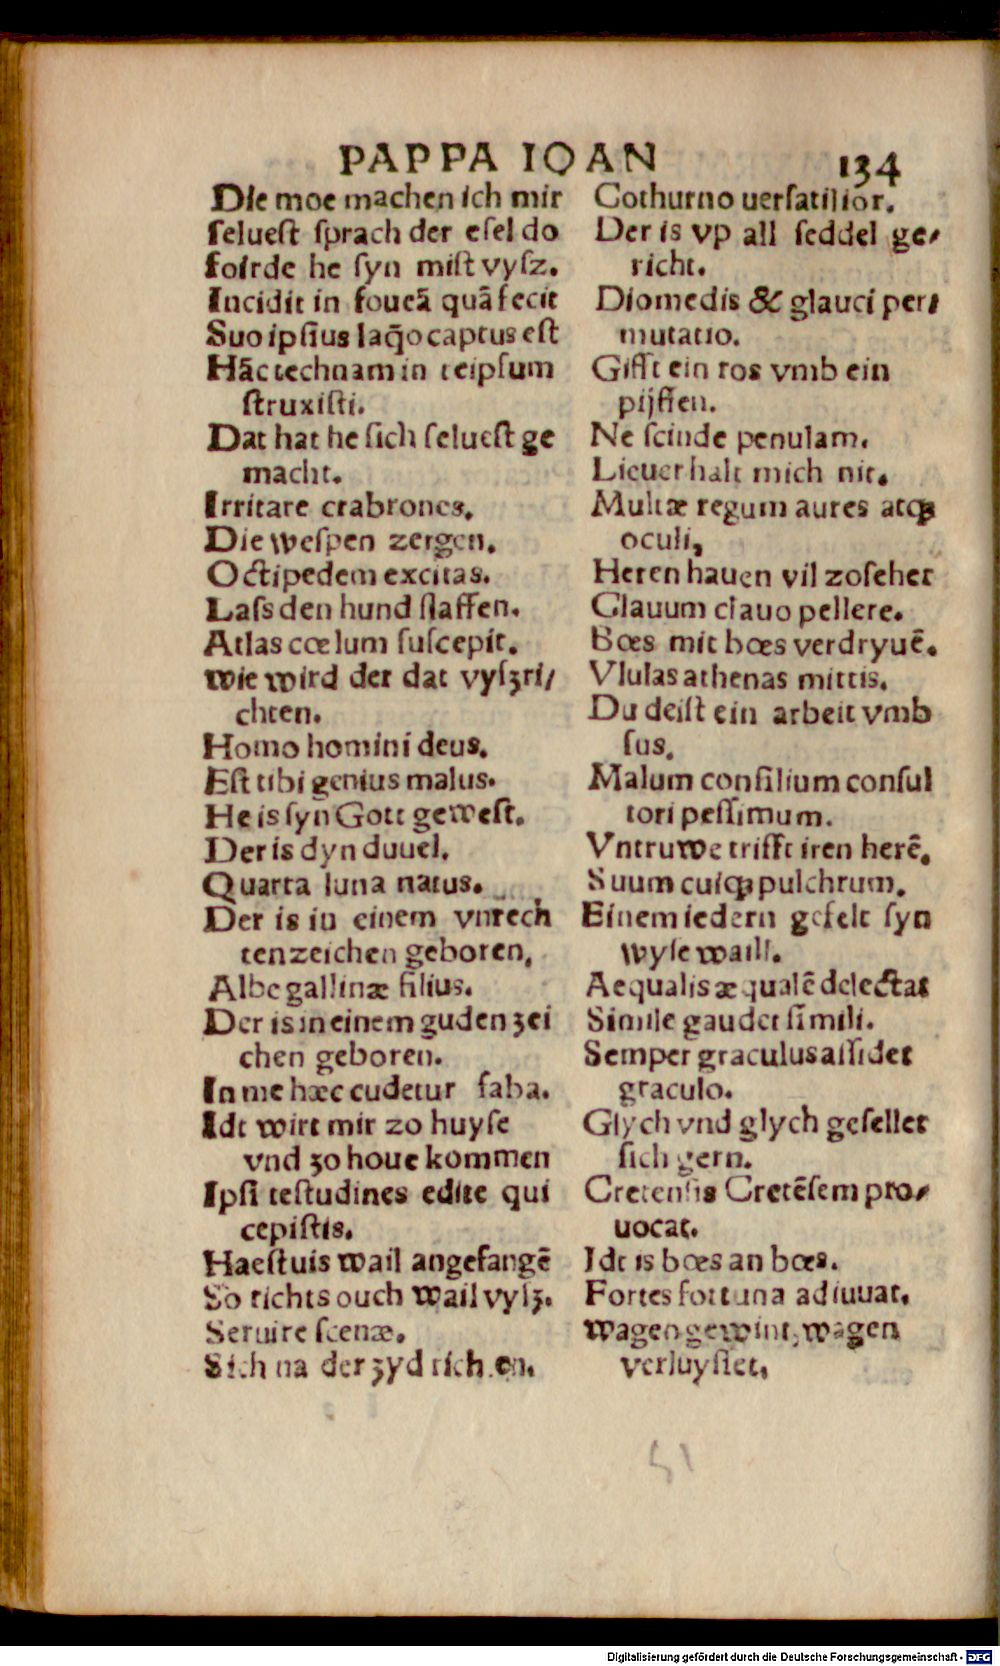 PAPPA IOAN 134
Die moe machen ich mir
ſelueſt ſprach der eſel do
foirde he ſyn miſt vyſz.
Incidit in foueã quã fecit
Suo ipſius laq̃o captus eſt
Hãc technam in teipſum
ſtruxiſti.
Dat hat he ſich ſelueſt ge
macht.
Irritare crabrones.
Die weſpen zergen.
Octipedem excitas.
Laſs den hund ſlaffen.
Atlas cœlum ſuſcepit.
wie wird der dat vyſʒri/
chten.
Homo homini deus.
Eſt tibi genius malus.
He is ſyn Gott geweſt.
Der is dyn duuel.
Quarta luna natus.
Der is in einem vnrech
tenzeichen geboren.
Albe gallinæ filius.
Der is in einem guden ʒei
chen geboren.
In me hæc cudetur faba.
Idt wirt mir zo huyſe
vnd ʒo houe kommen
Ipſi teſtudines edite qui
cepiſtis.
Haeſtuis wail angefangẽ
So richts ouch wail vyſʒ.
Seruire ſcenæ.
Sich na der ʒyd richten.
Cothurno uerſatilior.
Der is vp all ſeddel ge/
richt.
Diomedis & glauci per/
mutatio.
Gifft ein ros vmb ein
pijffen.
Ne ſcinde penulam.
Lieuer halt mich nit.
Multæ regum aures atqꝫ
oculi,
Heren hauen vil zoſeher
Clauum clauo pellere.
Bœs mit bœs verdryuẽ.
Vlulas athenas mittis.
Du deiſt ein arbeit vmb
ſus.
Malum conſilium conſul
tori peſſimum.
Vntruwe trifft iren herẽ.
Suum cuiqꝫ pulchrum.
Einem iedern gefelt ſyn
wyſe waill.
Aequalis æqualẽ delectat
Simile gaudet ſimili.
Semper graculus aſſidet
graculo.
Glych vnd glych geſellet
ſich gern.
Cretenſis Cretẽſem pro/
uocat.
Idt is bœs an bœs.
Fortes fortuna adiuuat.
Wagen gewint, wagen
verluyſtet.
51
Digitalisierung gefördert durch die Deutsche Forschungsgemeinschaft - DFG